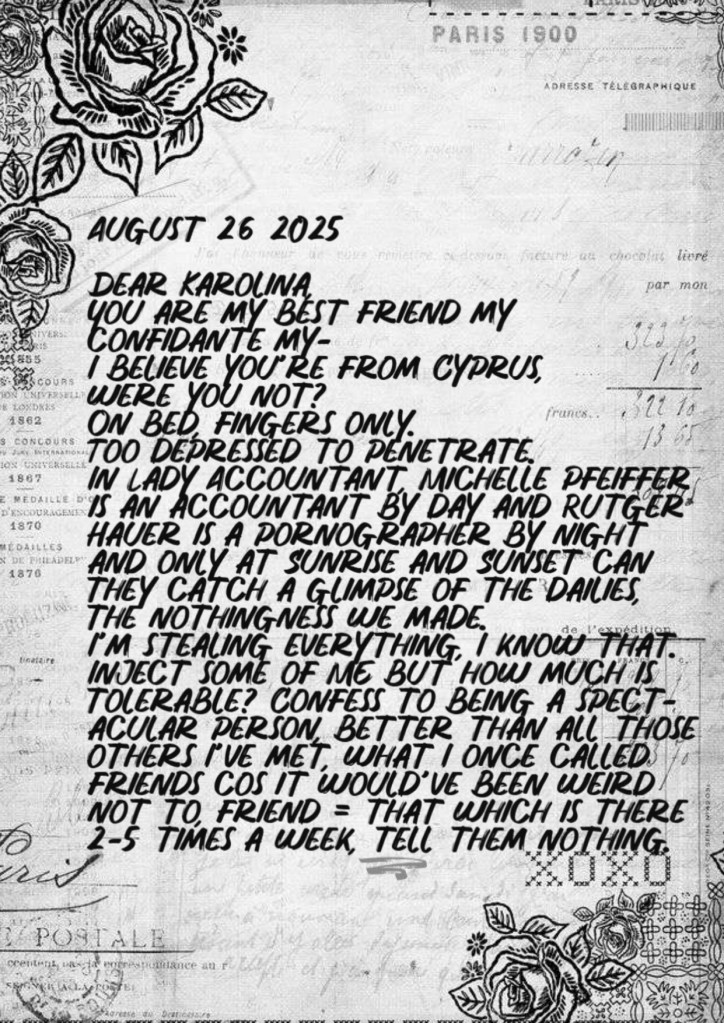 PARIS 1900
ADRESSE TÉLÉGRAPHIQUE
AUGUST 26 2025
J'ai l'honneur de vous remettre ci-dessous facture au chocolat livré
par mon
DEAR KAROLINA,
YOU ARE MY BEST FRIEND MY
CONFIDANTE MY-
I BELIEVE YOU'RE FROM CYPRUS,
WERE YOU NOT?
ON BED, FINGERS ONLY.
TOO DEPRESSED TO PENETRATE.
IN LADY ACCOUNTANT, MICHELLE PFEIFFER
IS AN ACCOUNTANT BY DAY AND RUTGER
HAUER IS A PORNOGRAPHER BY NIGHT
AND ONLY AT SUNRISE AND SUNSET CAN
THEY CATCH A GLIMPSE OF THE DAILIES,
THE NOTHINGNESS WE MADE.
I'M STEALING EVERYTHING, I KNOW THAT.
INJECT SOME OF ME BUT HOW MUCH IS
TOLERABLE? CONFESS TO BEING A SPECT-
ACULAR PERSON, BETTER THAN ALL THOSE
OTHERS I'VE MET, WHAT I ONCE CALLED
FRIENDS COS IT WOULD'VE BEEN WEIRD
NOT TO, FRIEND = THAT WHICH IS THERE
2-5 TIMES A WEEK, TELL THEM NOTHING.
XOXO
1855
CONCOURS
DE LONDRES
1862
CONCOURS
1867
MÉDAILLE D'O
D'ENCOURAGEMEN
1870
MÉDAILLES
DE PHILADELP
1876
francs..
322 10
13 65
de l'expédition
Paris
POSTALE
correspondance au r
Adresse du Destinataire